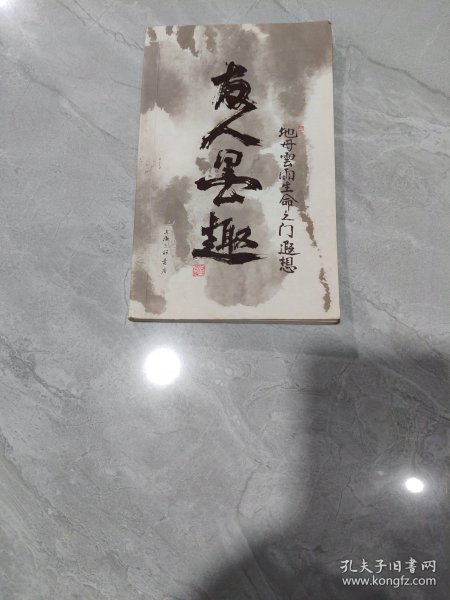 人墨趣
地母雲雨生命之门遐想
上海三联书店
孔夫子旧书网
www.kongfz.com